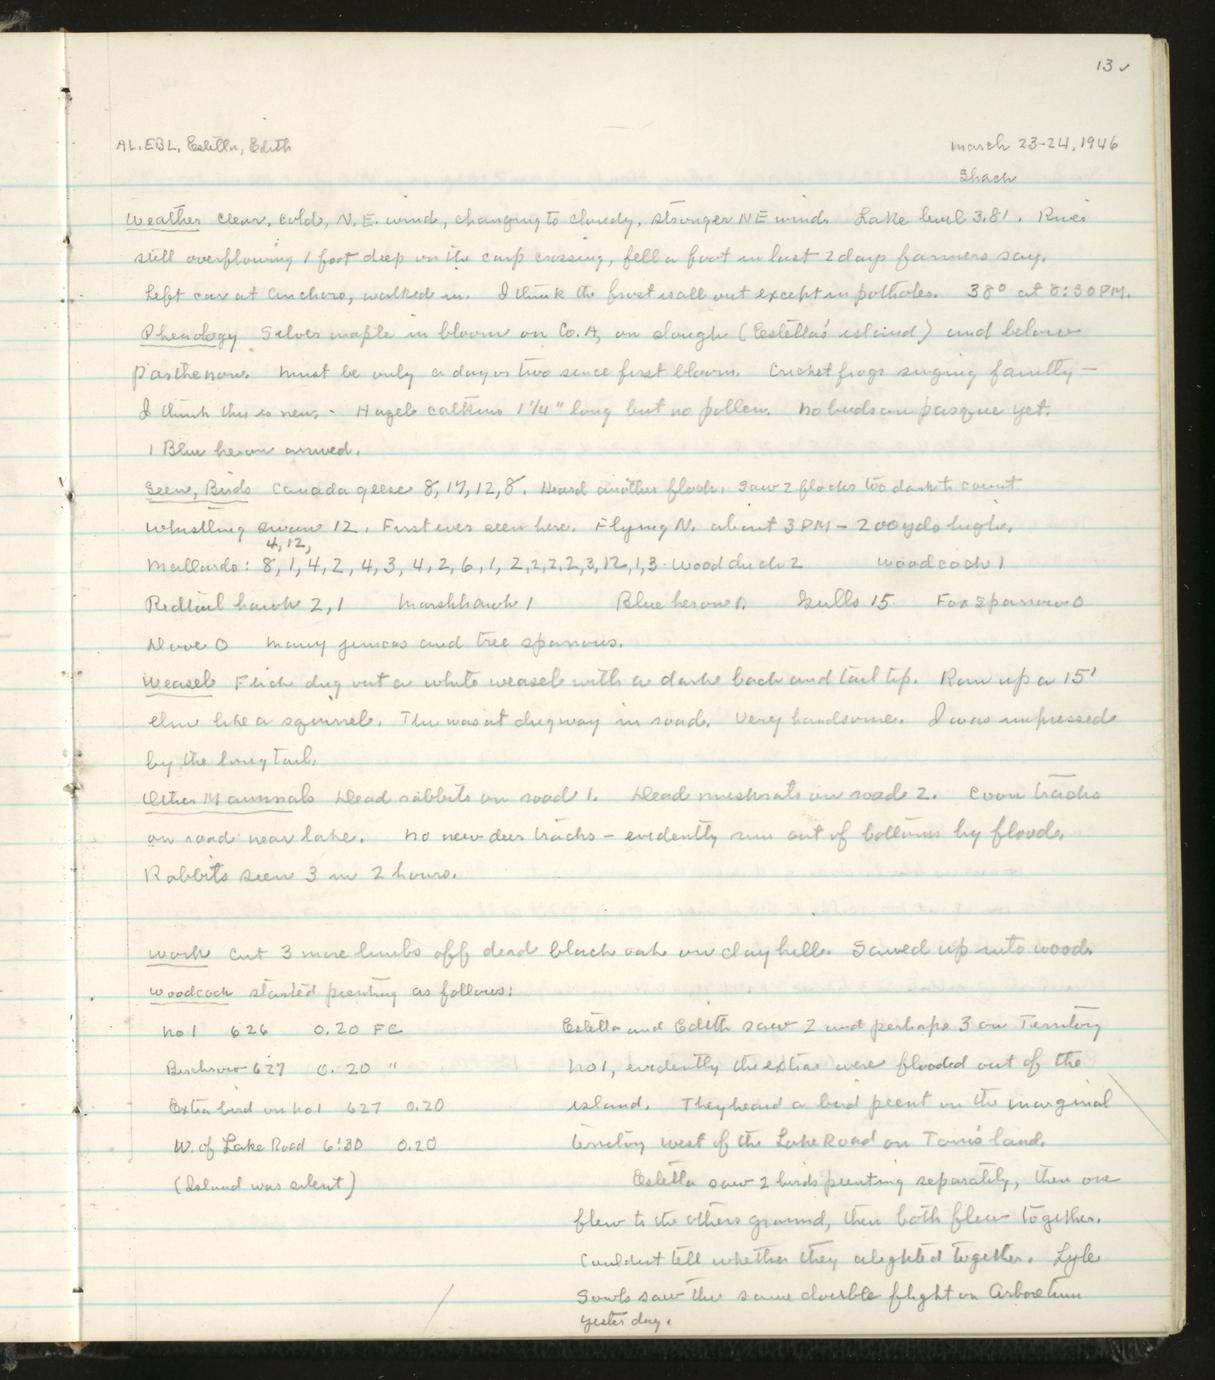 13 ✓
AL. EBL, Estella, Edith
March 23-24, 1946
Shack
Weather Clear, cold, N.E. wind, changing to cloudy, stronger NE wind. Lake level 3.81. River
still overflowing 1 foot deep on the carp crossing, fell a foot in last 2 days farmers say.
Left car at Anchers, walked in. I think the frost is all out except in potholes. 38° at 8:30 PM.
Phenology Silver maple in bloom on Co. A, on slough (Estella's island) and below
Parthenow. Must be only a day or two since first bloom. Cricket frogs singing faintly —
I think this is new. - Hazel catkins 1 1/4" long but no pollen. No buds on pasque yet.
1 Blue heron arrived.
Seen, Birds Canada geese 8, 17, 12, 8. Heard another flock. Saw 2 flocks too dark to count
Whistling swan 12. First ever seen here. Flying N. about 3 PM - 200 yds high.
4, 12,
Mallards: 8, 1, 4, 2, 4, 3, 4, 2, 6, 1, 2, 2, 2, 2, 3, 12, 1, 3. Wood duck 2 Woodcock 1
Redtail hawk 2, 1 Marshhawk 1 Blue heron 1. Gulls 15 Fox Sparrow 0
Dove 0 Many juncos and tree sparrows.
Weasel Flick dug out a white weasel with a dark back and tail tip. Ran up a 15'
elm like a squirrel. This was at dugway in road. Very handsome. I was impressed
by the long tail.
Other Mammals Dead rabbits on road 1. Dead muskrats on road 2. Coon tracks
on road near lake. No new deer tracks - evidently run out of bottoms by flood.
Rabbits seen 3 in 2 hours.
Work Cut 3 more limbs off dead black oak on clay hill. Sawed up into wood.
Woodcock started peenting as follows:
No 1 626 0.20 FC
Birchrow 627 0.20 "
Extra bird on No 1 627 0.20
W. of Lake Road 6:30 0.20
(Island was silent)
Estella and Edith saw 2 and perhaps 3 on Territory
No 1, evidently the extras were flooded out of the
island. They heard a bird peent in the marginal
territory west of the Lake Road on Tom's land.
Estella saw 2 birds peenting separately, then one
flew to the others ground, then both flew together.
Couldn't tell whether they alighted together. Lyle
Sowls saw the same double flight on Arboretum
yesterday.